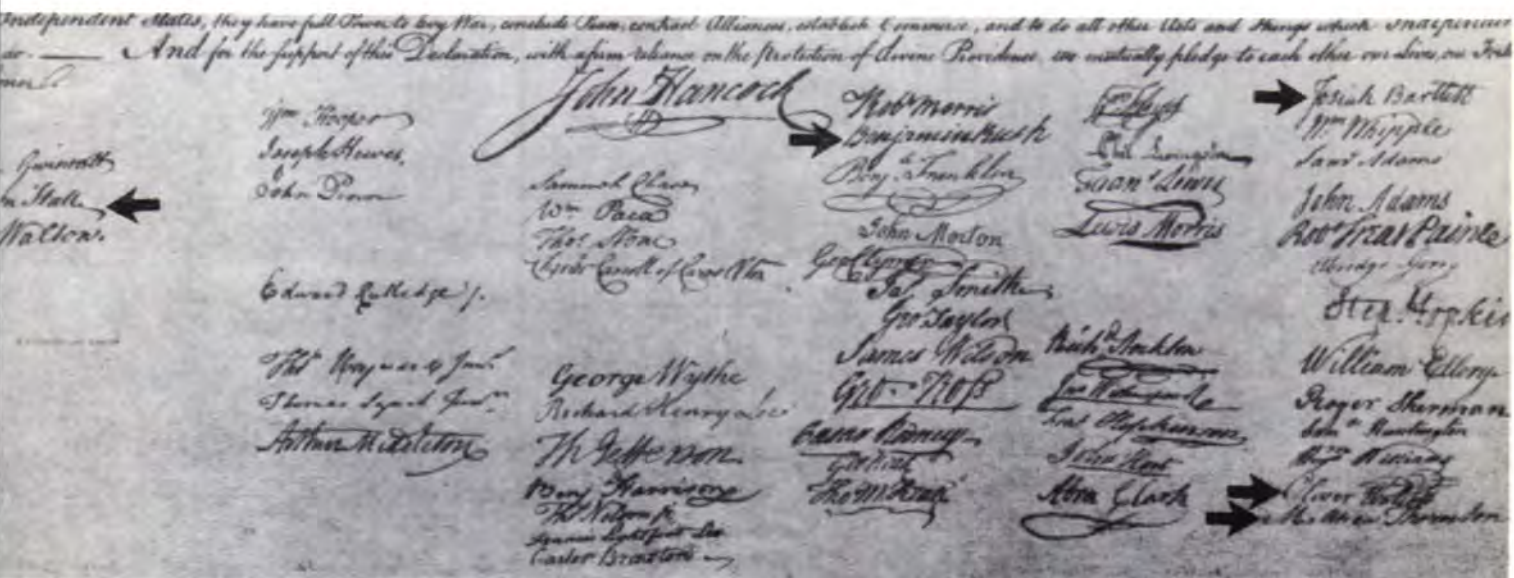 Independent States, they have full Power to levy War, conclude Peace, contract Alliances, establish Commerce, and to do all other Acts and Things which Independent
do. — And for the support of this Declaration, with a firm reliance on the Protection of divine Providence, we mutually pledge to each other our Lives, our
Gwinnett
Hall
Walton.
Wm Hooper
Joseph Hewes,
John Penn
Edward Rutledge
Thos Heyward Junr
Thomas Lynch Junr
Arthur Middleton
John Hancock
Samuel Chase
Wm Paca
Thos Stone
Charles Carroll of Carrollton
George Wythe
Richard Henry Lee
Th Jefferson
Benj Harrison
Thos Nelson jr
Francis Lightfoot Lee
Carter Braxton
Robt Morris
Benjamin Rush
Benj Franklin
John Morton
Geo Clymer
Jas Smith
Geo Taylor
James Wilson
Geo Ross
Caesar Rodney
Geo Read
Tho M:Kean
Phil Livingston
Frans Lewis
Lewis Morris
Richd Stockton
Jno Witherspoon
Fras Hopkinson
John Hart
Abra Clark
Josiah Bartlett
Wm Whipple
Saml Adams
John Adams
Robt Treat Paine
Elbridge Gerry
Step. Hopkins
William Ellery
Roger Sherman
Saml Huntington
Wm Williams
Oliver Wolcott
Matthew Thornton